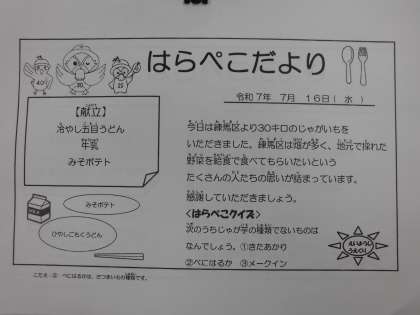 はらぺこだより
令和7年 7月 16日（水）
【献立】
冷やし五目うどん
牛乳
みそポテト
今日は練馬区より30キロのじゃがいもを
いただきました。練馬区は畑が多く、地元で採れた
野菜を給食で食べてもらいたいという
たくさんの人たちの思いが詰まっています。
感謝していただきましょう。
<はらぺこクイズ>
次のうちじゃが芋の種類でないものは
なんでしょう。①きたあかり
②べにはるか ③メークイン
みそポテト
ひやしごもくうどん
こたえ：② べにはるかは、さつまいもの種類です。